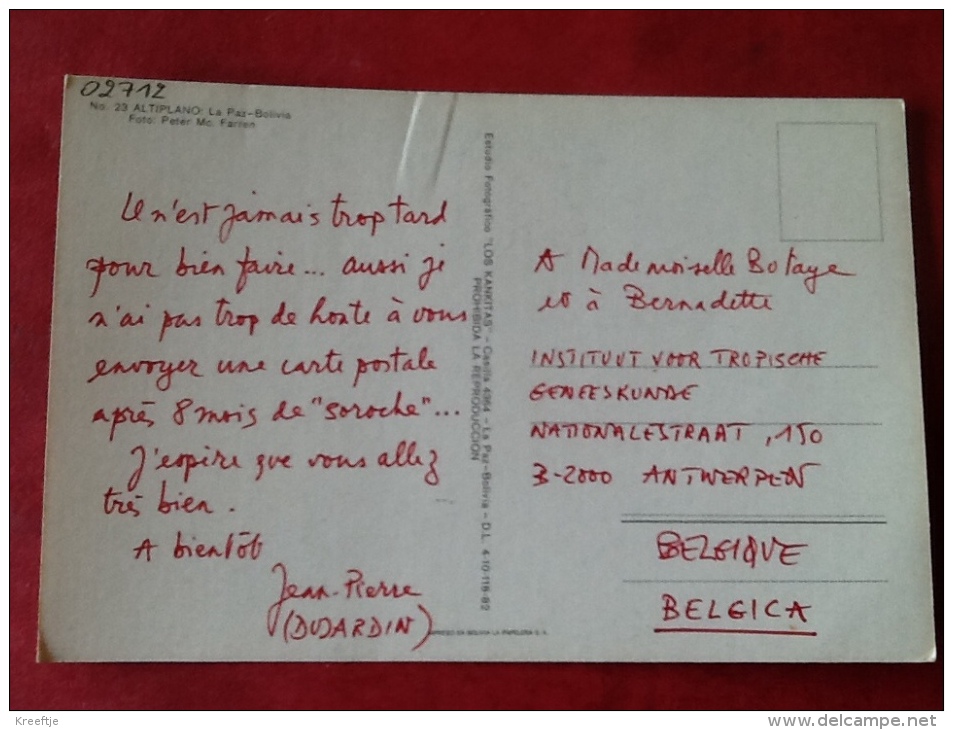 02712
No. 23 ALTIPLANO: La Paz-Bolivia
Foto: Peter Mc. Farren
Il n'est jamais trop tard
pour bien faire... aussi je
n'ai pas trop de honte à vous
envoyer une carte postale
après 8 mois de "soroche"...
J'espère que vous allez
très bien.
A bientôt
Jean-Pierre
(DUJARDIN)
Estudio Fotográfico "LOS KANKITAS" - Casilla 4364 - La Paz-Bolivia - D.L. 4-10-116-82
PROHIBIDA LA REPRODUCCION
IMPRESO EN BOLIVIA LA PAPELERA S.A.
A Mademoiselle Botaye
et à Bernadette
INSTITUUT VOOR TROPISCHE
GENEESKUNDE
NATIONALESTRAAT, 150
B-2000 ANTWERPEN
BELGIQUE
BELGICA
Kreeftje
www.delcampe.net